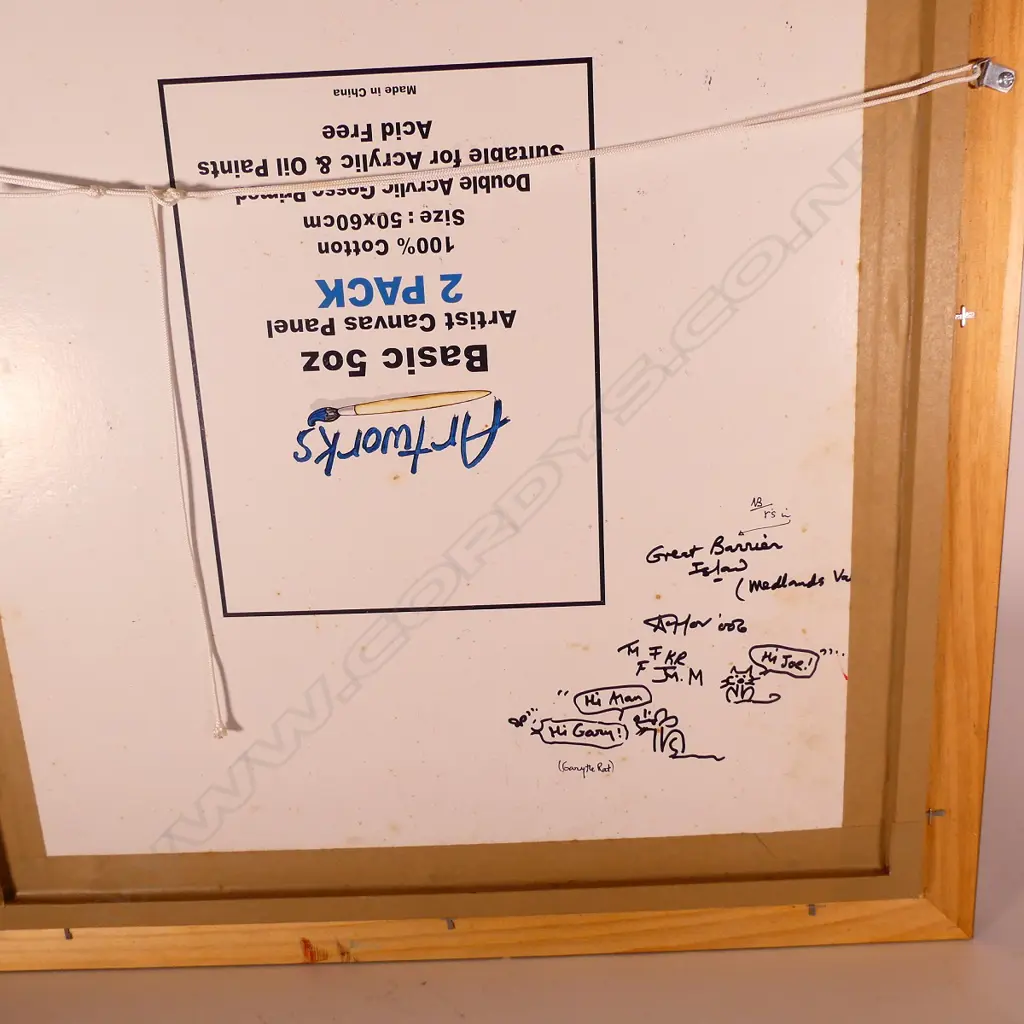 Artworks
Basic 5oz
Artist Canvas Panel
2 PACK
100% Cotton
Size : 50x60cm
Double Acrylic Gesso Primed
Suitable for Acrylic & Oil Paints
Acid Free
Made in China
Great Barrier
Island
(Medlands
Hi Joe!
Hi Alan
Hi Gary!
(Gary the Rat)
WWW.CORDYS.CO.NZ